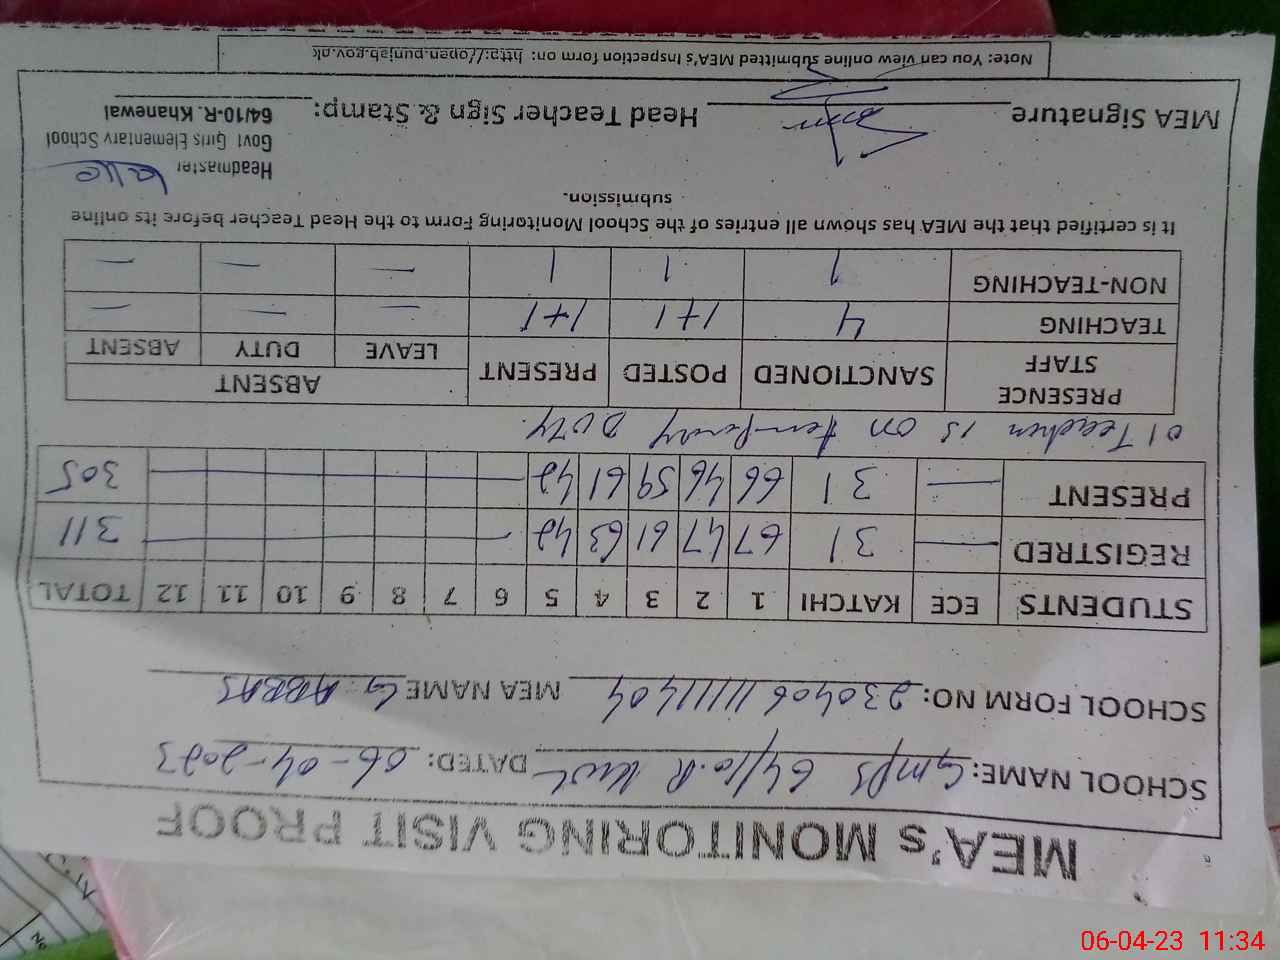 MEA's MONITORING VISIT PROOF
SCHOOL NAME: GMPS 64/10.R KWL DATED: 06-04-2023
SCHOOL FORM NO: 230406111111404 MEA NAME G. ABBAS
STUDENTS ECE KATCHI 1 2 3 4 5 6 7 8 9 10 11 12 TOTAL
REGISTRED — 31 67 47 61 63 42 — 311
PRESENT — 31 66 46 59 61 42 — 305
01 Teacher is on temporary DUTY.
PRESENCE STAFF SANCTIONED POSTED PRESENT ABSENT
LEAVE DUTY ABSENT
TEACHING 4 1+1 1+1 — — —
NON-TEACHING 1 1 1 — — —
It is certified that the MEA has shown all entries of the School Monitoring Form to the Head Teacher before its online
submission.
Headmaster
Govt Girls Elementary School
64/10-R. Khanewal
MEA Signature Head Teacher Sign & Stamp:
Note: You can view online submitted MEA's Inspection form on: http://open.punjab.gov.pk
06-04-23 11:34